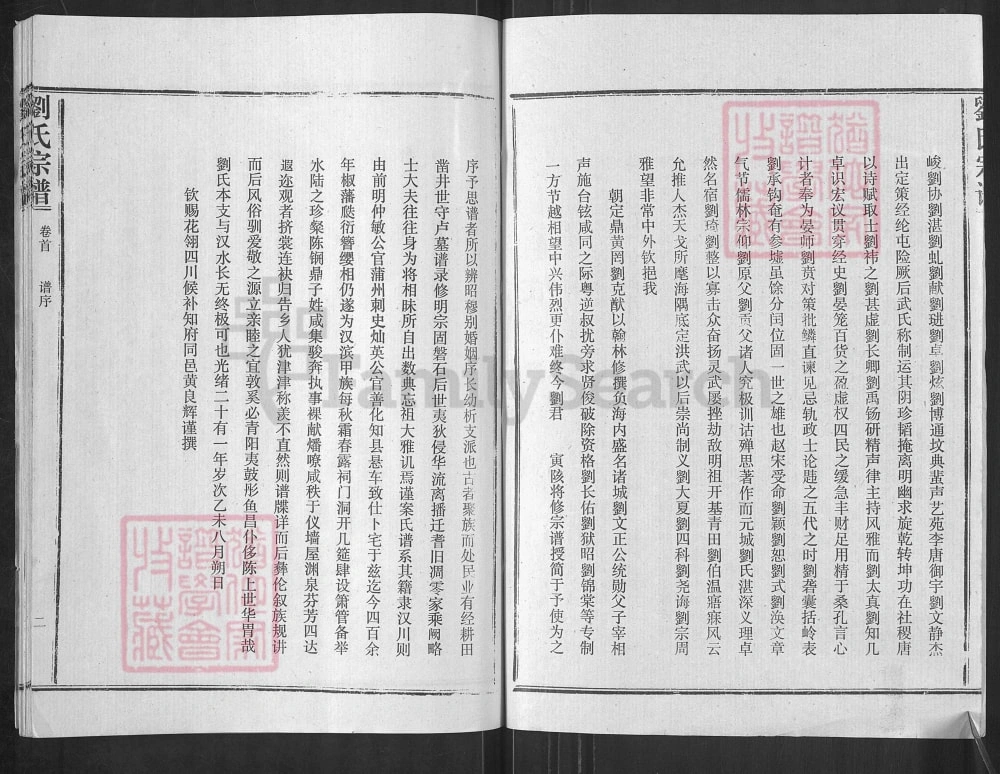 峻劉协劉湛劉虬劉献劉琎劉卓劉炫劉博通坟典蜚声艺苑李唐御宇劉文静杰
出定策经纶屯险厥后武氏称制运其阴珍韬掩离明幽求旋乾转坤功在社稷唐
以诗赋取士劉祎之劉甚虚劉长卿劉禹钖研精声律主持风雅而劉太真劉知几
卓识宏议贯穿经史劉晏笼百货之盈虚权四民之缓急丰财足用精于桑孔言心
计者奉为晏师劉贲对策批鳞直谏见忌轨政士论韪之五代之时劉砻囊括岭表
劉承钩奄有参墟虽馀分闰位固一世之雄也赵宋受命劉颖劉恕劉式劉涣文章
气节儒林宗仰劉原父劉贡父诸人究极训诂殚思著作而元城劉氏湛深义理卓
然名宿劉琦劉整以寡击众奋扬灵武屡挫劫敌明祖开基青田劉伯温寤寐风云
允推人杰天戈所麾海隅底定洪武以后崇尚制义劉大夏劉四科劉尧诲劉宗周
雅望非常中外钦挹我
朝定鼎黄罔劉克猷以翰林修撰负海内盛名诸城劉文正公统勋父子宰相
声施台铉咸同之际粤逆叔扰旁求贤俊破除资格劉长佑劉狱昭劉锦棠等专制
一方节越相望中兴伟烈更仆难终今劉君 寅陔将修宗谱授简于予使为之
劉氏宗谱 卷首 谱序 二
序予思谱者所以辨昭穆别婚姻序长幼析支派也古者聚族而处民业有经耕田
凿井世守卢墓谱录修明宗固磐石后世夷狄侵华流离播迁耆旧凋零家乘阙略
士大夫往往身为将相昧所自出数典忘祖大雅讥焉谨案氏谱系其籍隶汉川则
由前明仲敏公官蒲州刺史灿英公官善化知县悬车致仕卜宅于兹迄今四百余
年椒藩瓞衍簪缨相仍遂为汉滨甲族每秋霜春露祠门洞开几筵肆设箫管备举
水陆之珍粲陈铏鼎子姓咸集骏奔执事裸献燔嘹咸秩于仪墙屋渊泉芬芳四达
遐迩观者挤裳连袂归告乡人犹津津称羡不直然则谱牒详而后彝伦叙族规讲
而后风俗驯爱敬之源立亲睦之宜敦奚必青阳夷鼓彤鱼昌仆侈陈上世华胄哉
劉氏本支与汉水长无终极可也光绪二十有一年岁次乙未八月朔日
钦赐花翎四川候补知府同邑黄良辉谨撰
FamilySearch